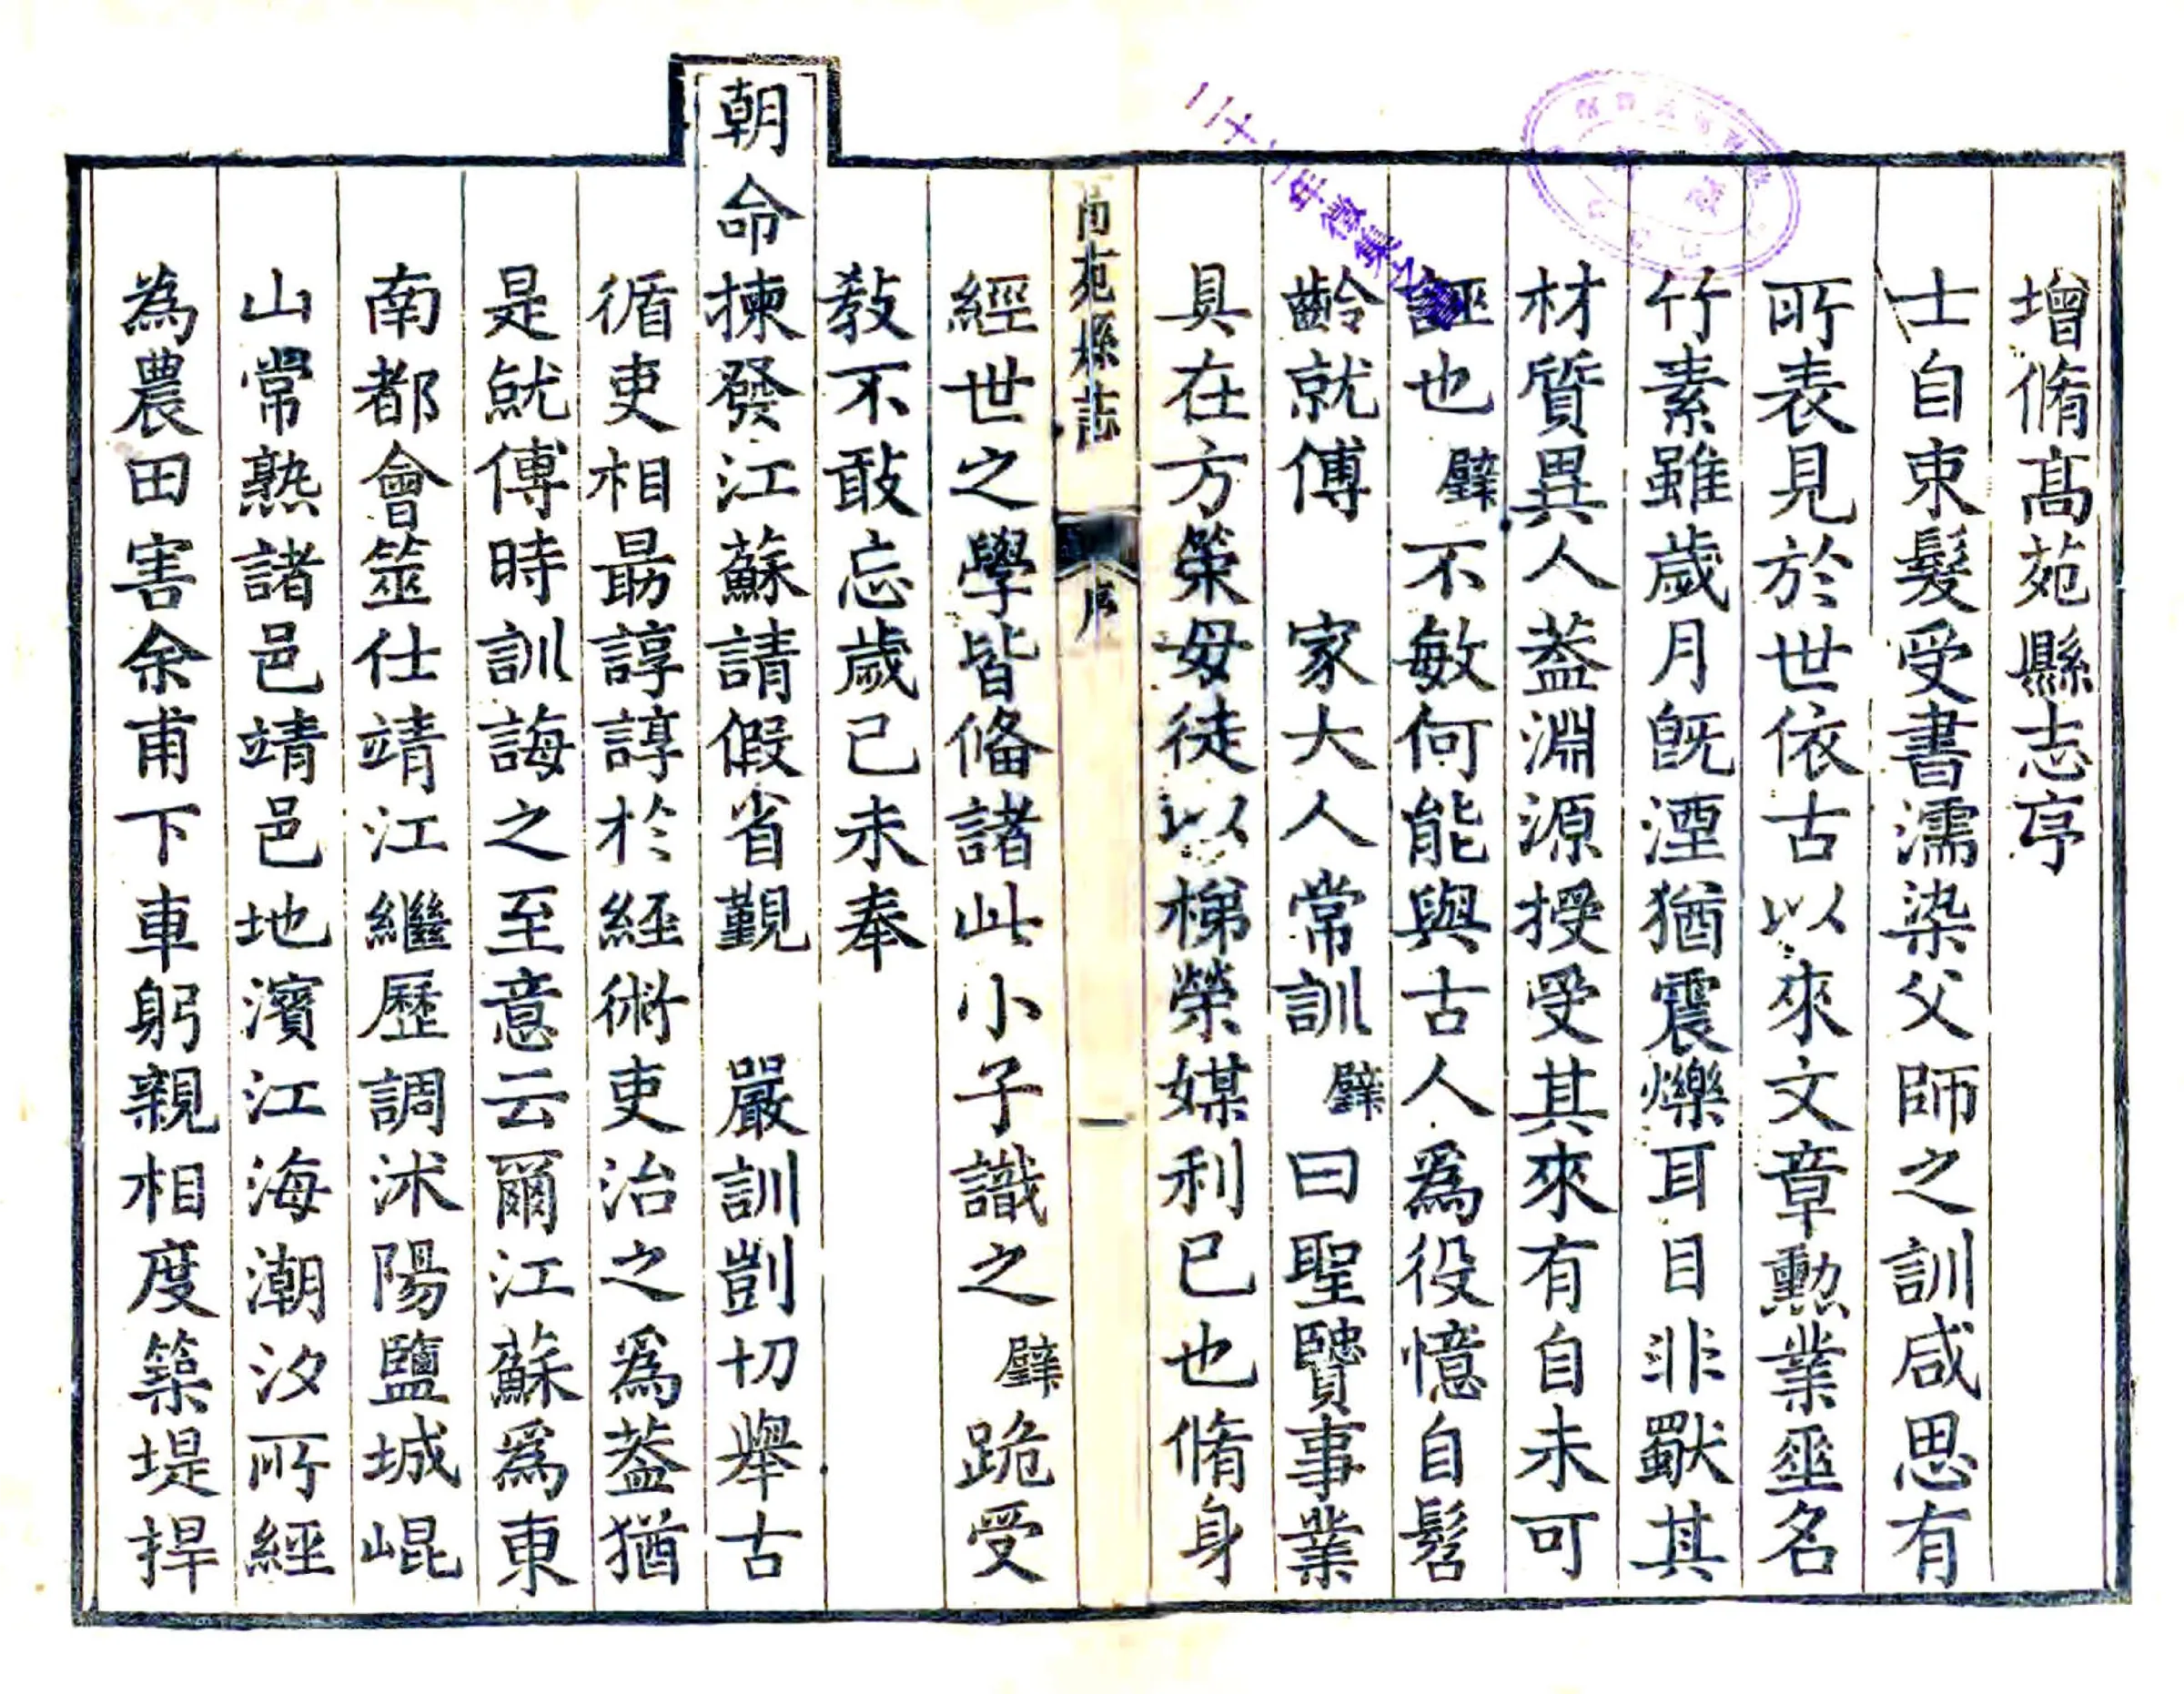 增脩髙苑縣志序
士自束髮受書濡染父師之訓咸思有
所表見於世依古以來文章勲業垂名
竹素雖歲月旣湮猶震爍耳目非獣其
材質異人葢淵源授受其來有自未可
誣也璧不敏何能與古人為役憶自髫
齡就傅　家大人常訓璧曰聖賢事業
具在方策毋徒以梯榮媒利已也脩身
高苑縣志
序
一
經世之學皆備諸此小子識之璧跪受
敎不敢忘歲己未奉
朝命揀發江蘇請假省覲　嚴訓剴切舉古
循吏相勗諄諄於經術吏治之為葢猶
是就傅時訓誨之至意云爾江蘇為東
南都會筮仕靖江繼歷調沭陽鹽城崐
山常熟諸邑靖邑地濱江海潮汐所經
為農田害余甫下車躬親相度築堤捍